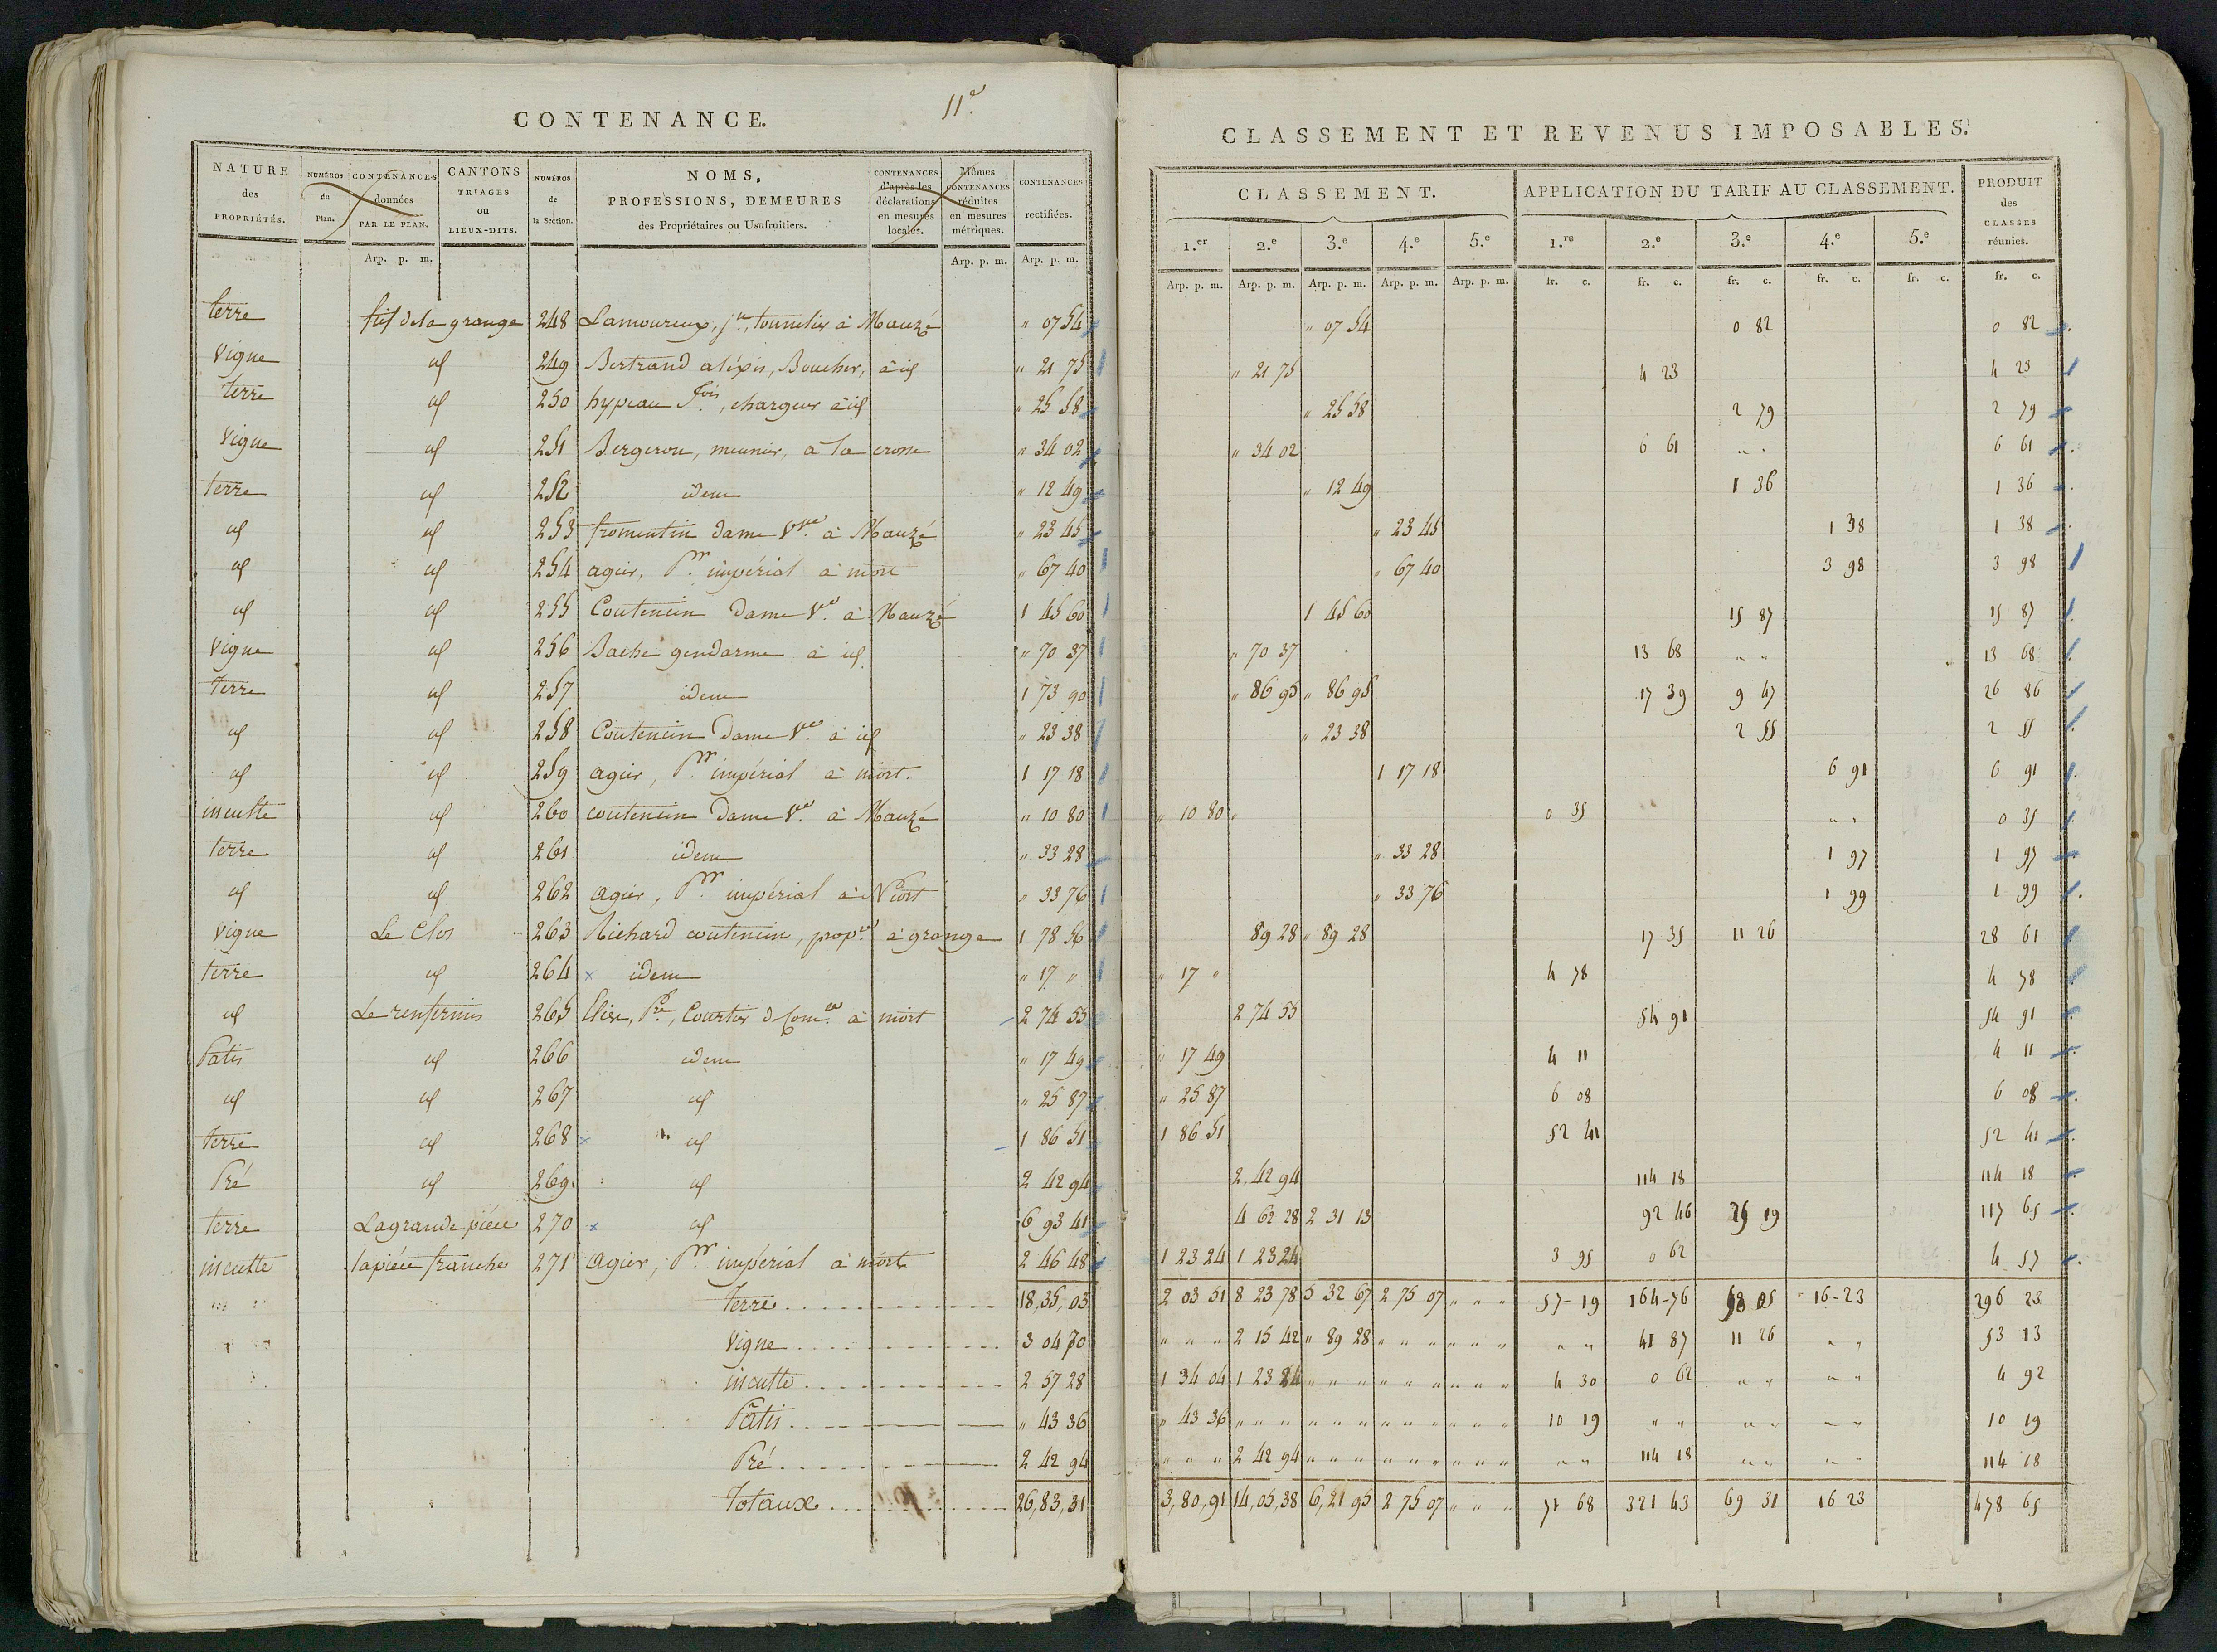 CONTENANCE.
11e.
NATURE des PROPRIÉTÉS. | NUMÉROS du Plan. | CONTENANCES données PAR LE PLAN. | CANTONS TRIAGES ou LIEUX-DITS. | NUMÉROS de la Section. | NOMS, PROFESSIONS, DEMEURES des Propriétaires ou Usufruitiers. | CONTENANCES d'après les déclarations en mesures locales. | Mêmes CONTENANCES réduites en mesures métriques. | CONTENANCES rectifiées.
Arp. p. m. Arp. p. m. Arp. p. m.
terre fief de la grange 248 Lamoureux, jne, tonnelier à Mauzé " 07 54
Vigne id 249 Bertrand aléxis, Boucher, à id " 21 75
terre id 250 hypeau fois, chargeur à id " 25 58
Vigne id 251 Bergeron, meunier, à la crosse " 34 02
terre id 252 idem " 12 49
id id 253 fromentin dame Vve. à Mauzé " 23 45
id id 254 agier, Pr. impérial à niort " 67 40
id id 255 Coutencin Dame Ve. à Mauzé 1 45 60
Vigne id 256 Baché gendarme à id " 70 37
Terre id 257 idem 1 73 90
id id 258 Coutencin Dame Ve. à id " 23 38
id id 259 agier, Pr. impérial à niort. 1 17 18
inculte id 260 coutencin Dame Ve. à Mauzé " 10 80
terre id 261 idem " 33 28
id id 262 agier, Pr. impérial à Niort " 33 76
Vigne Le Clos 263 Richard coutencin, propre à grange 1 78 56
terre id 264 x idem " 17 "
id Le renfermis 265 Elise, Pre, Courtier de Comce à niort 2 74 55
Patis id 266 idem " 17 49
id id 267 id " 25 87
Terre id 268 x id 1 86 51
Pré id 269 id 2 42 94
terre La grande pièce 270 x id 6 93 41
inculte la pièce franche 271 agier, Pr. impérial à niort 2 46 48
terre 18,35,03
Vigne 3 04 70
inculte 2 57 28
Pâtis " 43 36
Pré 2 42 94
Totaux 26,83,31
CLASSEMENT ET REVENUS IMPOSABLES.
CLASSEMENT. | APPLICATION DU TARIF AU CLASSEMENT. | PRODUIT des CLASSES réunies.
1.er 2.e 3.e 4.e 5.e 1.re 2.e 3.e 4.e 5.e
Arp. p. m. Arp. p. m. Arp. p. m. Arp. p. m. Arp. p. m. fr. c. fr. c. fr. c. fr. c. fr. c. fr. c.
" 07 54 0 82 0 82
" 21 75 4 23 4 23
" 25 58 2 79 2 79
" 34 02 6 61 " " 6 61
" 12 49 1 36 1 36
" 23 45 1 38 1 38
" 67 40 3 98 3 98
1 45 60 15 87 15 87
" 70 37 13 68 " " 13 68
" 86 95 " 86 95 17 39 9 47 26 86
" 23 38 2 55 2 55
1 17 18 6 91 6 91
" 10 80 " 0 35 " " 0 35
" 33 28 1 97 1 97
" 33 76 1 99 1 99
89 28 " 89 28 17 35 11 26 28 61
" 17 " 4 78 4 78
2 74 55 54 91 54 91
" 17 49 4 11 4 11
" 25 87 6 08 6 08
1 86 51 52 41 52 41
2 42 94 114 18 114 18
4 62 28 2 31 13 92 46 25 19 117 65
1 23 24 1 23 24 3 95 0 62 4 57
2 03 51 8 23 78 5 32 67 2 75 07 " " " 57-19 164-76 58 05 16-23 296 23
" " " 2 15 42 " 89 28 " " " " " " " " 41 87 11 26 " " 53 13
1 34 04 1 23 24 " " " " " " " " " 4 30 0 62 " " " " 4 92
" 43 36 " " " " " " " " " " " " 10 19 " " " " " " 10 19
" " " 2 42 94 " " " " " " " " " " " 114 18 " " " " 114 18
3,80,91 14,05,38 6,21 95 2 75 07 " " " 71 68 321 43 69 31 16 23 478 65